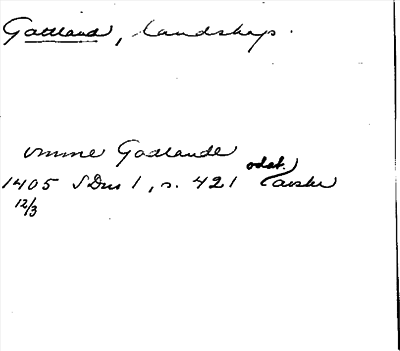 Gottland, landskap.
vmme Godlande
1405 SDns 1, s. 421 odat. avskr
12/3